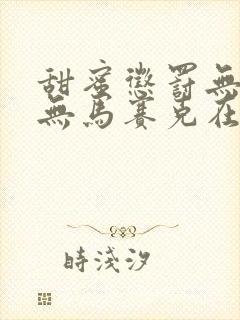 甜蜜懲罰無
無馬賽克在
時淺汐